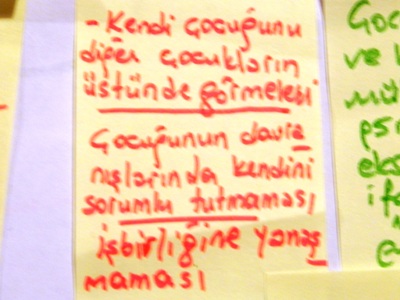 - Kendi çocuğunu
diğer çocukların
üstünde görmeleri
Çocuğunun davra
nışlarında kendini
sorumlu tutmaması
işbirliğine yanaş
maması
Çoc
ve
mü
psi
eks
ifa